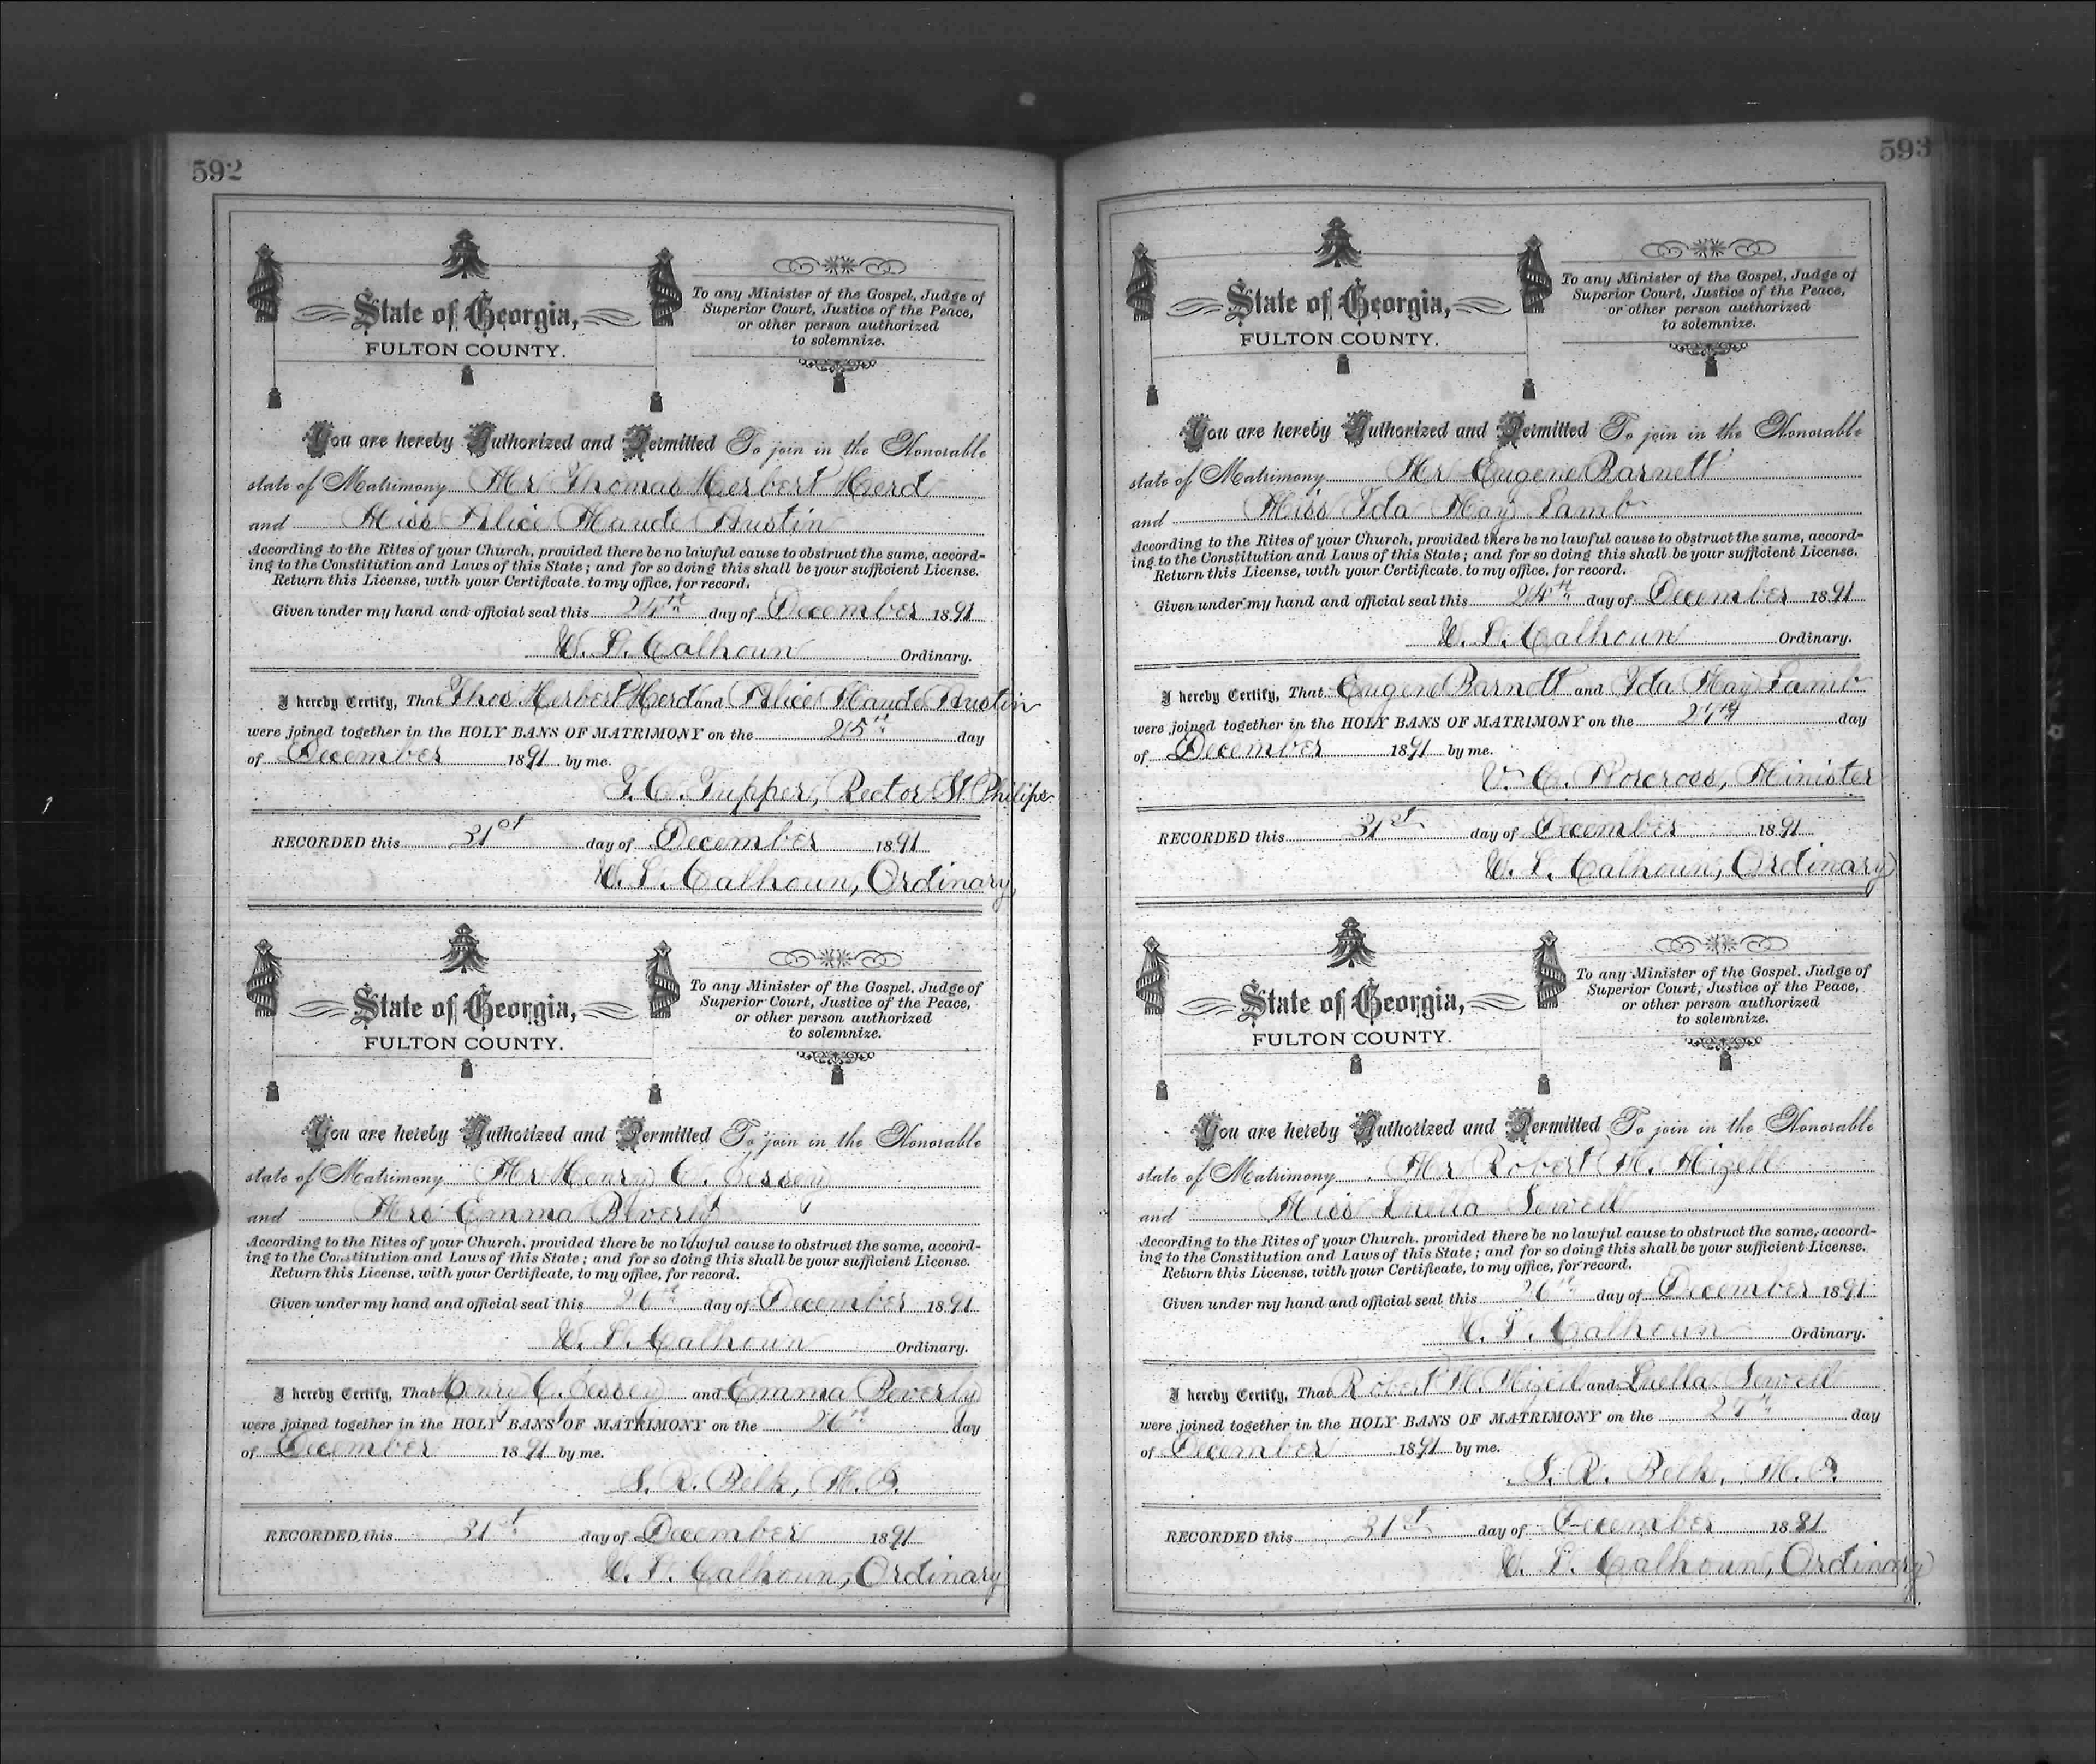 592
State of Georgia,
FULTON COUNTY.
To any Minister of the Gospel, Judge of
Superior Court, Justice of the Peace,
or other person authorized
to solemnize.
You are hereby Authorized and Permitted To join in the Honorable
state of Matrimony Mr Thomas Herbert Herd
and Miss Alice Maude Austin
According to the Rites of your Church, provided there be no lawful cause to obstruct the same, accord-
ing to the Constitution and Laws of this State; and for so doing this shall be your sufficient License.
Return this License, with your Certificate, to my office, for record.
Given under my hand and official seal this 24th day of December 1891
W. L. Calhoun Ordinary.
I hereby Certify, That Thos Herbert Herd and Alice Maude Austin
were joined together in the HOLY BANS OF MATRIMONY on the 25th day
of December 1891 by me.
T. C. Tupper, Rector St Philips
RECORDED this 31st day of December 1891
W. L. Calhoun, Ordinary
State of Georgia,
FULTON COUNTY.
To any Minister of the Gospel, Judge of
Superior Court, Justice of the Peace,
or other person authorized
to solemnize.
You are hereby Authorized and Permitted To join in the Honorable
state of Matrimony Mr Henry C.
and Mrs Emma Beverly
According to the Rites of your Church, provided there be no lawful cause to obstruct the same, accord-
ing to the Constitution and Laws of this State; and for so doing this shall be your sufficient License.
Return this License, with your Certificate, to my office, for record.
Given under my hand and official seal this 26th day of December 1891
W. L. Calhoun Ordinary.
I hereby Certify, That Henry C. and Emma Beverly
were joined together in the HOLY BANS OF MATRIMONY on the 26th day
of December 1891 by me.
S. R. Belk, M. G.
RECORDED this 31st day of December 1891
W. L. Calhoun, Ordinary
593
State of Georgia,
FULTON COUNTY.
To any Minister of the Gospel, Judge of
Superior Court, Justice of the Peace,
or other person authorized
to solemnize.
You are hereby Authorized and Permitted To join in the Honorable
state of Matrimony Mr Eugene Barnett
and Miss Ida May Lamb
According to the Rites of your Church, provided there be no lawful cause to obstruct the same, accord-
ing to the Constitution and Laws of this State; and for so doing this shall be your sufficient License.
Return this License, with your Certificate, to my office, for record.
Given under my hand and official seal this 24th day of December 1891
W. L. Calhoun Ordinary.
I hereby Certify, That Eugene Barnett and Ida May Lamb
were joined together in the HOLY BANS OF MATRIMONY on the 27th day
of December 1891 by me.
V. C. Norcross, Minister
RECORDED this 31st day of December 1891
W. L. Calhoun, Ordinary
State of Georgia,
FULTON COUNTY.
To any Minister of the Gospel, Judge of
Superior Court, Justice of the Peace,
or other person authorized
to solemnize.
You are hereby Authorized and Permitted To join in the Honorable
state of Matrimony Mr Robert M. Mizell
and Miss Luella Sewell
According to the Rites of your Church, provided there be no lawful cause to obstruct the same, accord-
ing to the Constitution and Laws of this State; and for so doing this shall be your sufficient License.
Return this License, with your Certificate, to my office, for record.
Given under my hand and official seal this 26th day of December 1891
W. L. Calhoun Ordinary.
I hereby Certify, That Robert M. Mizell and Luella Sewell
were joined together in the HOLY BANS OF MATRIMONY on the 27th day
of December 1891 by me.
S. R. Belk, M. G.
RECORDED this 31st day of December 1891
W. L. Calhoun, Ordinary